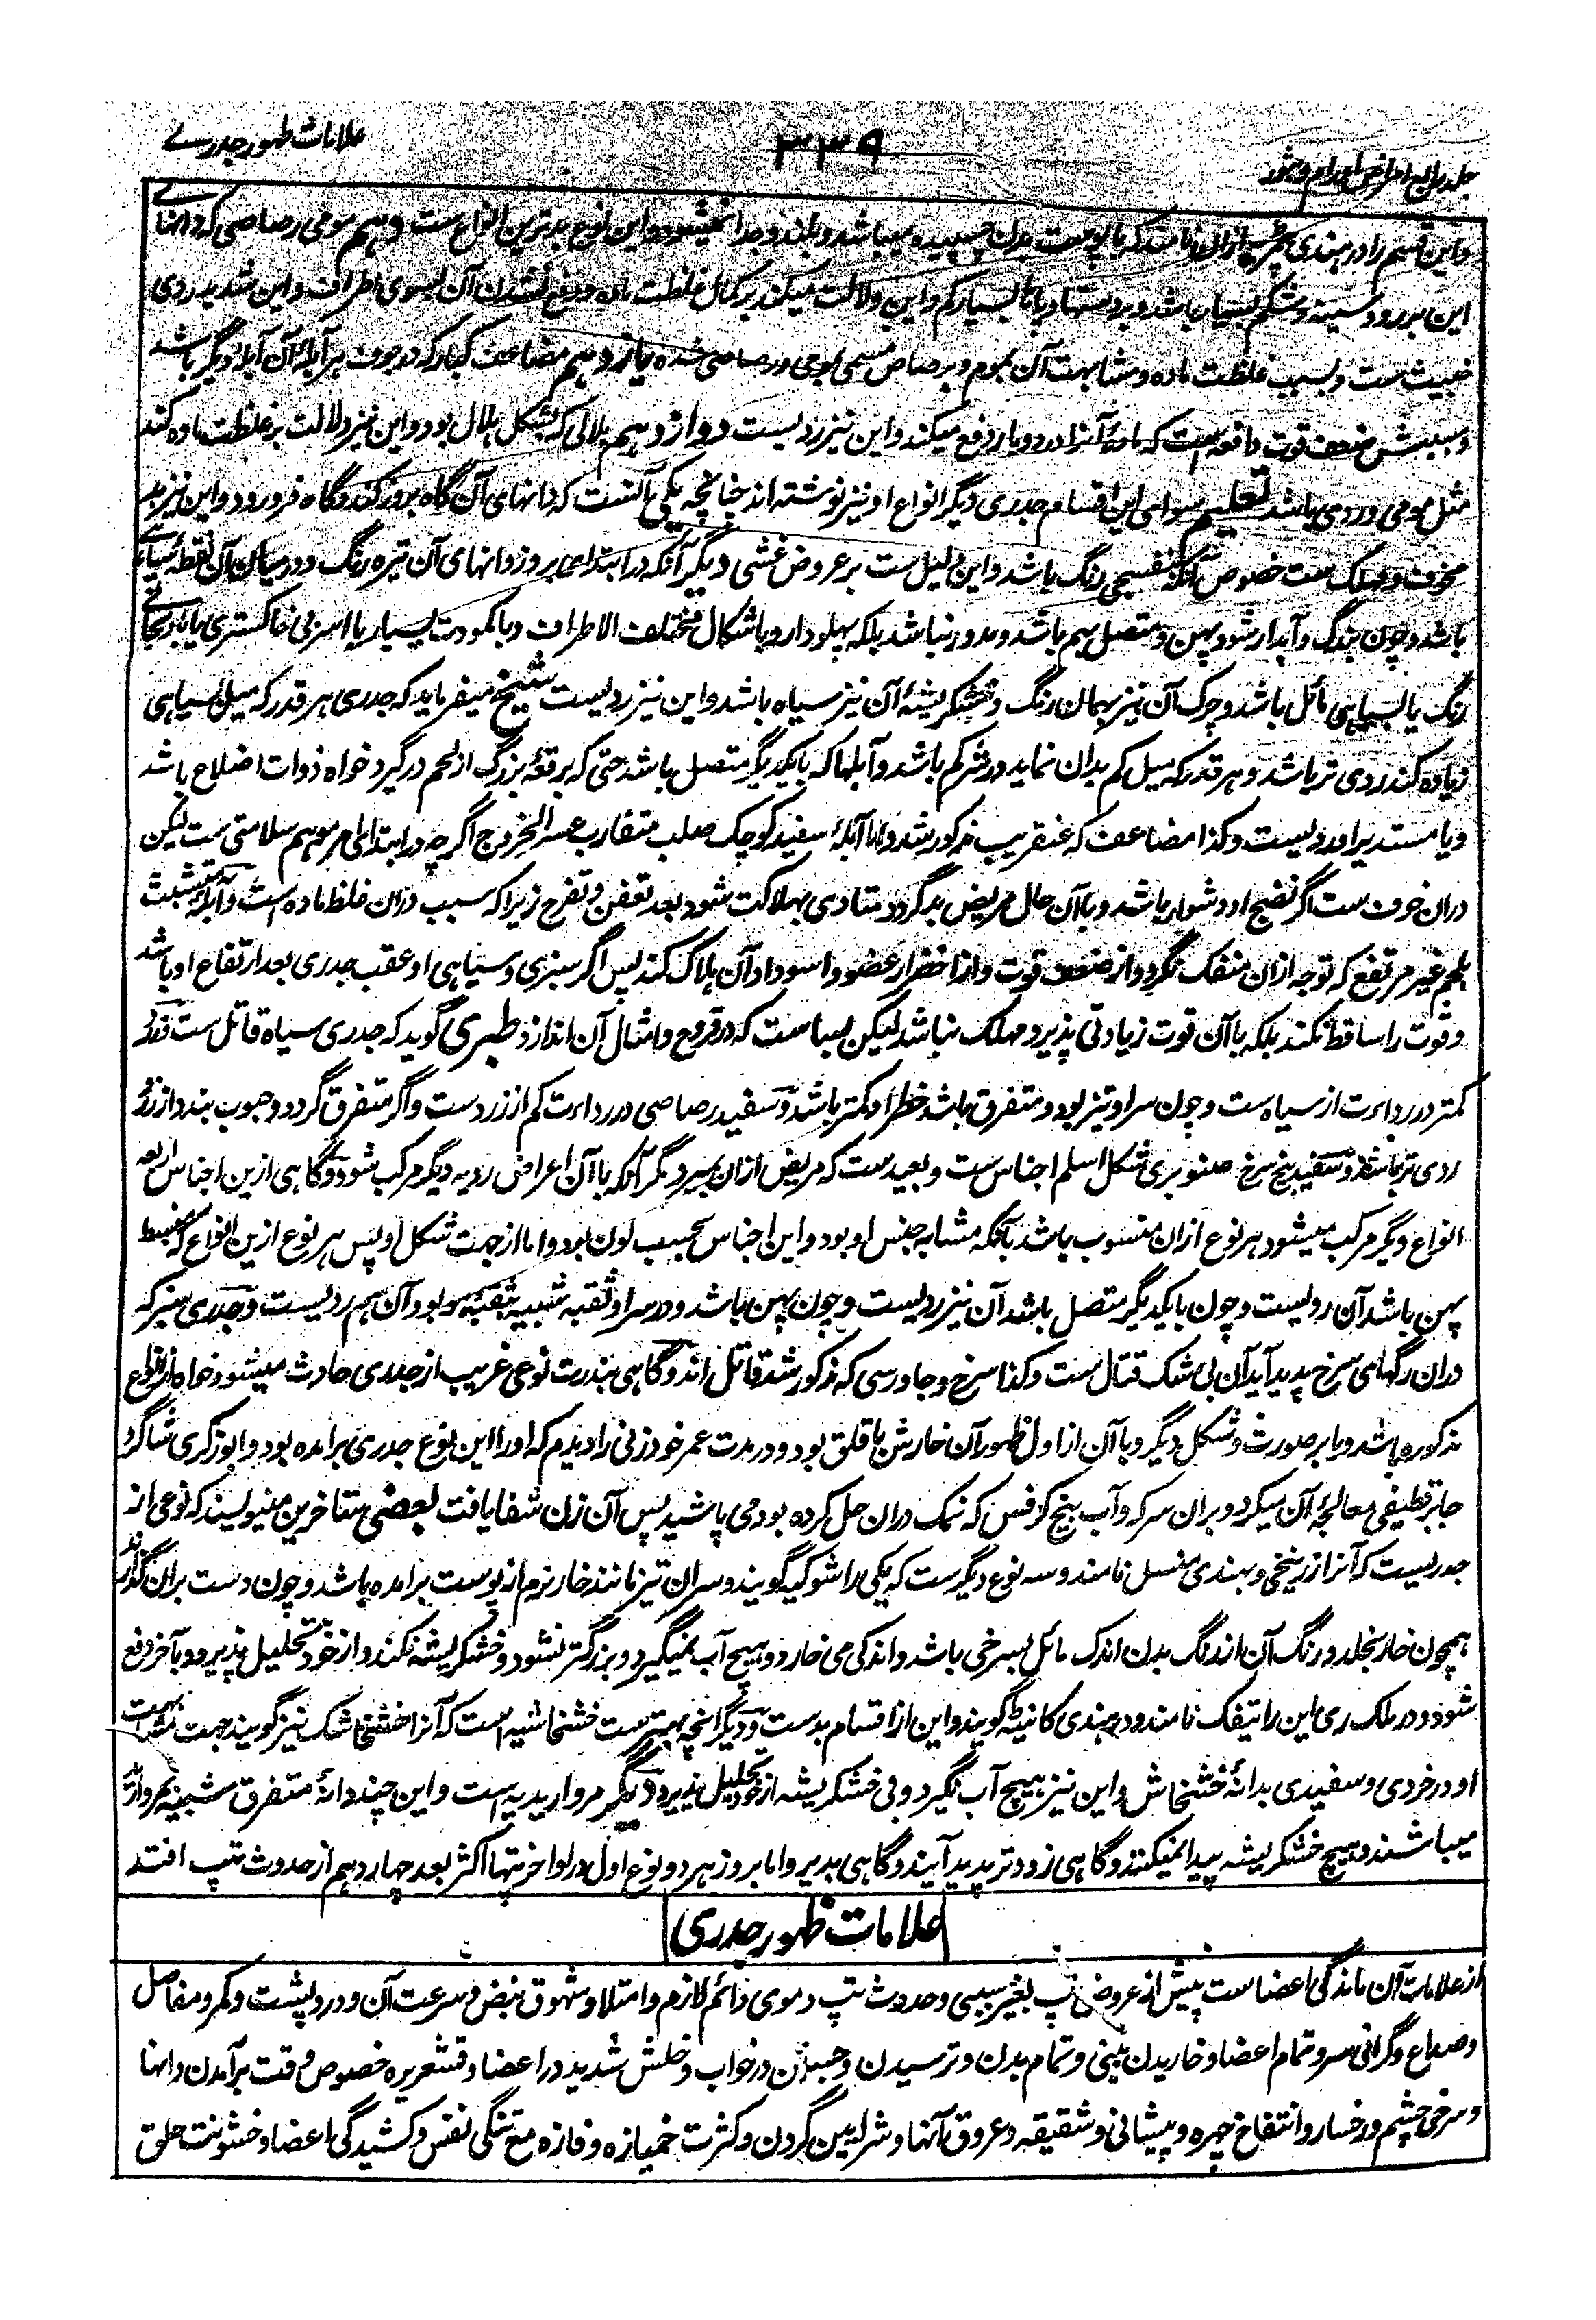 علامات ظهور جدرے
۳۳۹
جلد رابع امراض اورام و بثور
و این قسم را در هندی نامند که با پوست بدن چسپیده میباشد و بلند و جدا نمیشود و این نوع بدترین انواع ست دهم مومی رصاصی که دانهاے
این بر رو و سینه و شکم بسیار باشد و بر دستها و پاها بسیار کم و این دلالت میکند بر کمال غلظت ماده و دفع نشدن آن بسوی اطراف و این شدید ردی
خبیث ست و بسبب غلظت ماده و مشابهت آن بموم و برصاص مسمی بمومی و رصاصی شده یازدهم مضاعف کبار که در جوف هر آبله آن آبله دیگر باشد
و سببش ضعف قوت دافعه است که ماده آنرا در دو بار دفع میکند و این نیز ردیست دوازدهم هلالی که بشکل هلال بود و این نیز دلالت بر غلظت ماده کند
مثل مومی و ردی باشد تعلیم سوای این اقسام جدری دیگر انواع او نیز نوشته اند چنانچه یکی آنست که دانهای آن گاه بروز کند و گاه فرو رود و این نیز بد
مخوف و مهلک ست خصوص آنکه بنفسجی رنگ باشد و این دلیل ست بر عروض غشی دیگر آنکه در ابتدای بروز دانهای آن تیره رنگ و در میان آن نقطه سیاے
باشد و چون بزرگ و آبدار شود پهن و متصل بهم باشد و مدور نباشد بلکه پهلودار و باشکال مختلف الاطراف و با کمودت بسیار یا اسربی خاکستری یا بادنجانے
رنگ یا بسیاهی مائل باشد و چرک آن نیز بهمان رنگ و خشکریشه آن نیز سیاه باشد و این نیز ردیست شیخ میفرماید که جدری هر قدر که میل بسیاهی
زیاده کند ردی تر باشد و هر قدر که میل کم بدان نماید در شر کم باشد و آبلها که بایکدیگر متصل باشد حتی که بر قعهٔ بزرگ از لحم در گیرد خواه ذوات اضلاع باشد
و یا مستدیر او ردیست و کذا مضاعف که عنقریب مذکور شد و اما آبلهٔ سفید کوچک صلب متقارب عسر الخروج اگرچه در ابتدای امر موهم سلامتی ست لیکن
دران خوف ست اگر نضج او دشوار باشد و با آن حال مریض بد گردد متادی بهلاکت شود بعد تعفن و تقرح زیرا که سبب دران غلظ ماده است و آبلهٔ متشبث
بلحم غیر مرتفع که توجه ازان منفک نگردد از ضعف قوت و از اخضرار عضو و اسوداد آن هلاک کند پس اگر سبزی و سیاهی او عقب جدری بعد ارتفاع او باشد
و قوت را ساقط نکند بلکه با آن قوت زیادتی پذیرد مهلک نباشد لیکن بسا ست که در قروح و امثال آن اندازد طبری گوید که جدری سیاه قاتل ست و زرد
کمتر در رداءت از سیاه ست و چون سر او تیز بود و متفرق باشد خطر او کمتر باشد و سفید رصاصی در رداءت کم از زرد ست و اگر متفرق گردد و حبوب بندد از زرد
ردی تر باشد و سفید بیخ سرخ صنوبری شکل اسلم اجناس ست و بعید ست که مریض ازان بمیرد مگر آنکه با آن اعراض ردیه دیگر مرکب شود و گاهی ازین اجناس اربعه
انواع دیگر مرکب میشود هر نوع ازان منسوب باشد بآنکه مشابه جنس او بود و این اجناس بحسب لون بود و اما از جهت شکل او پس هر نوع ازین انواع که منبسط
پهن باشد آن ردیست و چون بایکدیگر متصل باشد آن نیز ردیست و چون پهن باشد و در سر او ثقبه شبیه بثقبه بود آن هم ردیست و جدری سبز که
دران رگهای سرخ پدید آید آن بی شک قتال ست و کذا سرخ و جاورسی که مذکور شد قاتل اند و گاهی بندرت نوعی غریب از جدری حادث میشود خواه از انواع
مذکوره باشد و یا بر صورت و شکل دیگر و با آن از اول ظهور آن خارش با قلق بود و در مدت عمر خود زنی را دیدم که او را این نوع جدری برامده بود و ابو زکری شاگرد
جابر معالجهٔ آن میکرد و بران سرکه و آب بیخ کرفس که نمک دران حل کرده بود می پاشید پس آن زن شفا یافت بعضی متاخرین مینویسند که نوعی از
جدریست که آنرا زرنیخی و بهندی منسل نامند و سه نوع دیگرست که یکی را شوکیه گویند و سر آن تیز مانند خار نرم از پوست برامده باشد و چون دست بران گذارند
همچون خار بخلد و رنگ آن از رنگ بدن اندک مائل بسرخی باشد و اندکی می خارد و هیچ آب نمیگیرد و بزرگتر نشود و خشکریشه نکند و از خود تحلیل پذیرد و بآخر دفع
شود و در ملک ری این را تیفک نامند و در هندی کانیٹه گویند و این از اقسام بدست و دیگر آنچه بهترست خشخاشیه است که آنرا خشخاشک نیز گویند جهت مشابهت
او در خردی و سفیدی بدانهٔ خشخاش و این نیز هیچ آب نگیرد و بی خشکریشه از خود تحلیل پذیرد دیگر مرواریدیه است و این چند دانهٔ متفرق شبیه بمروارید
میباشند و هیچ خشکریشه پیدا نمیکنند و گاهی زودتر پدید آیند و گاهی بدیر و اما بروز هر دو نوع اول در اواخر تپها اکثر بعد چهاردهم از حدوث تپ افتد
علامات ظهور جدری
از علامات آن ماندگی اعضاست پیش از عروض تپ بغیر سببی و حدوث تپ دموی دائم لازم و امتلا و شهوق نبض و سرعت آن و درد پشت و کمر و مفاصل
و صداع و گرانی سر و تمام اعضا و خاریدن بینی و تمام بدن و ترسیدن و جنبیدن در خواب و خلش شدید در اعضا و قشعریره خصوص وقت برآمدن دانها
و سرخی چشم و رخسار و انتفاخ چهره و پیشانی و شقیقه و عروق آنها و شرایین گردن و کثرت خمیازه و فازه مع تنگی نفس و کشیدگی اعضا و خشونت حلق